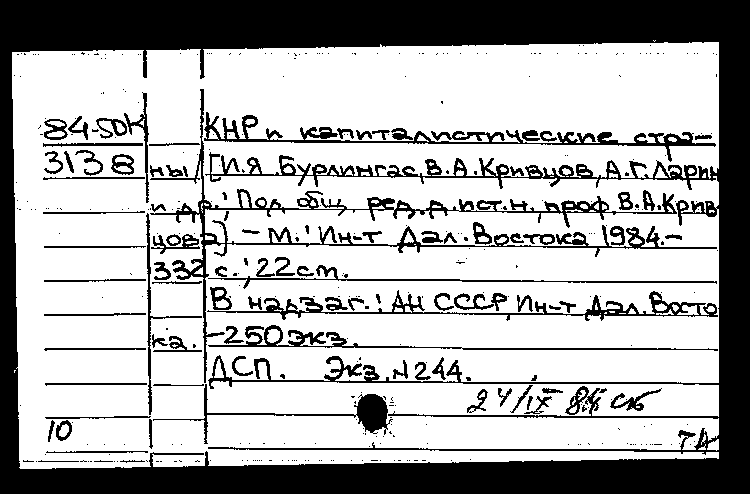 84-5ДК КНР и капиталистические стра-
3138 ны / [И.Я Бурлингас, В.А.Кривцов, А.Г.Ларин
и др.; Под общ. ред. д.ист.н., проф. В.А.Крив-
цова]. - М.: Ин-т Дал. Востока, 1984.-
332 с.; 22 см.
В надзаг.: АН СССР, Ин-т Дал. Восто
ка. -250 экз.
ДСП. Экз. N 244.
24/IX 84
10